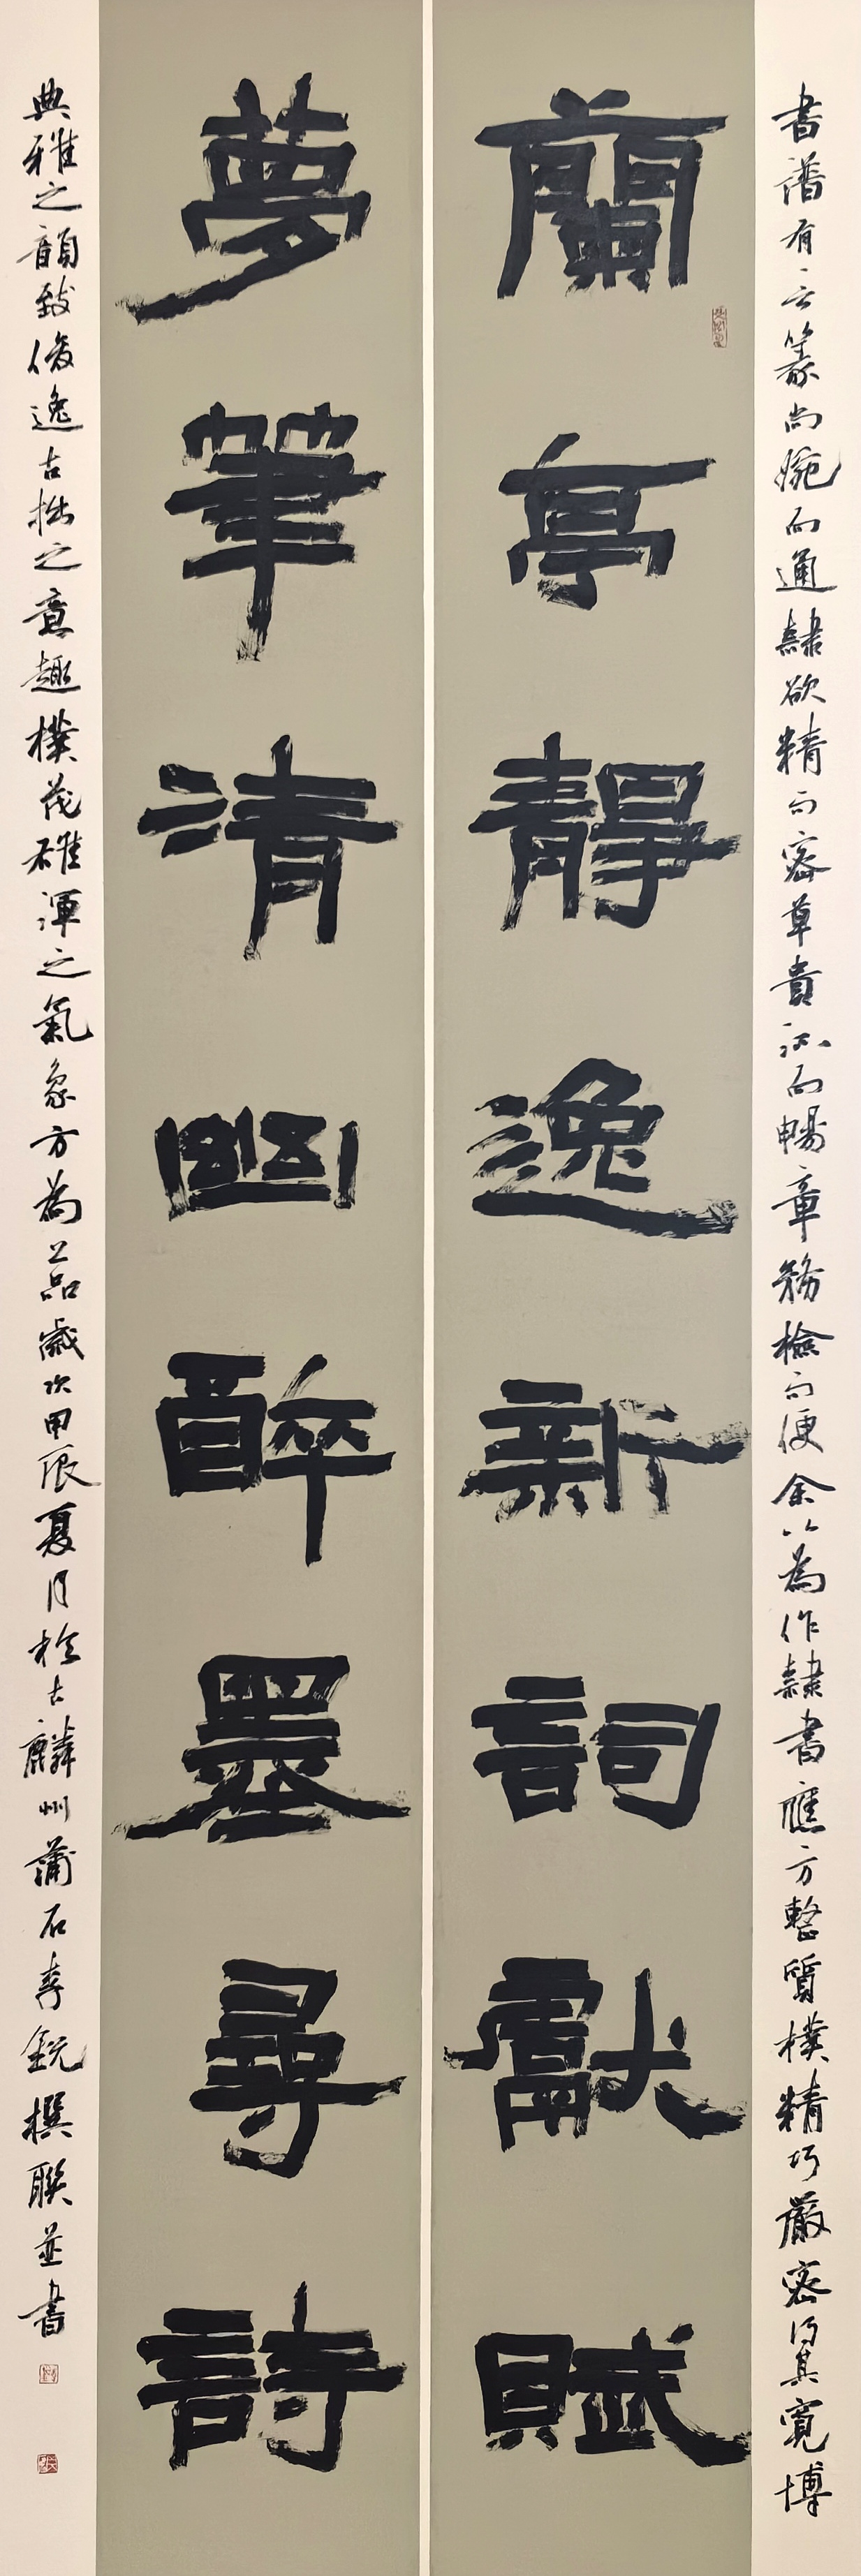 書譜有云篆尚婉而通隸欲精而密草貴流而暢章務檢而便余以為作隸書應方整質樸精巧嚴密得其寬博
蘭亭靜逸新詞獻賦
夢筆清幽醉墨尋詩
典雅之韻致俊逸古拙之意趣樸茂雄渾之氣象方為上品歲次甲辰夏月於古麟州蒲石李銳撰聯並書